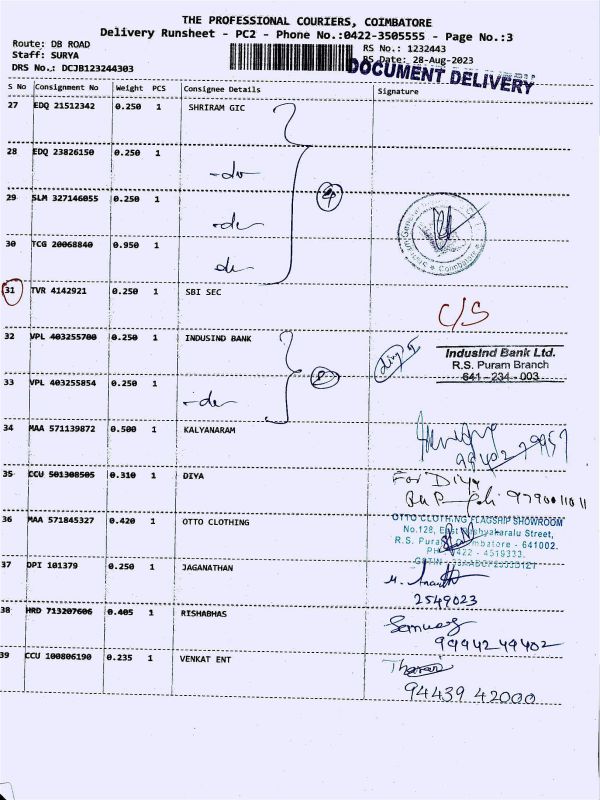 THE PROFESSIONAL COURIERS, COIMBATORE
Delivery Runsheet - PC2 - Phone No.:0422-3505555 - Page No.:3
Route: DB ROAD
RS No.: 1232443
Staff: SURYA
RS Date: 28-Aug-2023
DRS No.: DCJB123244303
DOCUMENT DELIVERY
S No Consignment No Weight PCS Consignee Details Signature
27 EDQ 21512342 0.250 1 SHRIRAM GIC
28 EDQ 23826150 0.250 1
-do-
29 SLM 327146055 0.250 1
-do-
30 TCG 20068840 0.950 1
do
Coimbatore
31 TVR 4142921 0.250 1 SBI SEC
C/S
32 VPL 403255700 0.250 1 INDUSIND BANK
IndusInd Bank Ltd.
R.S. Puram Branch
641 - 234 - 003
33 VPL 403255854 0.250 1
-do-
34 MAA 571139872 0.500 1 KALYANARAM
35 CCU 501308505 0.310 1 DIYA
For Diya
9790011011
36 MAA 571845327 0.420 1 OTTO CLOTHING
OTTO CLOTHING FLAGSHIP SHOWROOM
No.128, East Street,
R.S. Coimbatore - 641002.
0422 - 4519333.
37 DPI 101379 0.250 1 JAGANATHAN
2549023
38 HRD 713207606 0.405 1 RISHABHAS
9994249402
39 CCU 100806190 0.235 1 VENKAT ENT
94439 42000